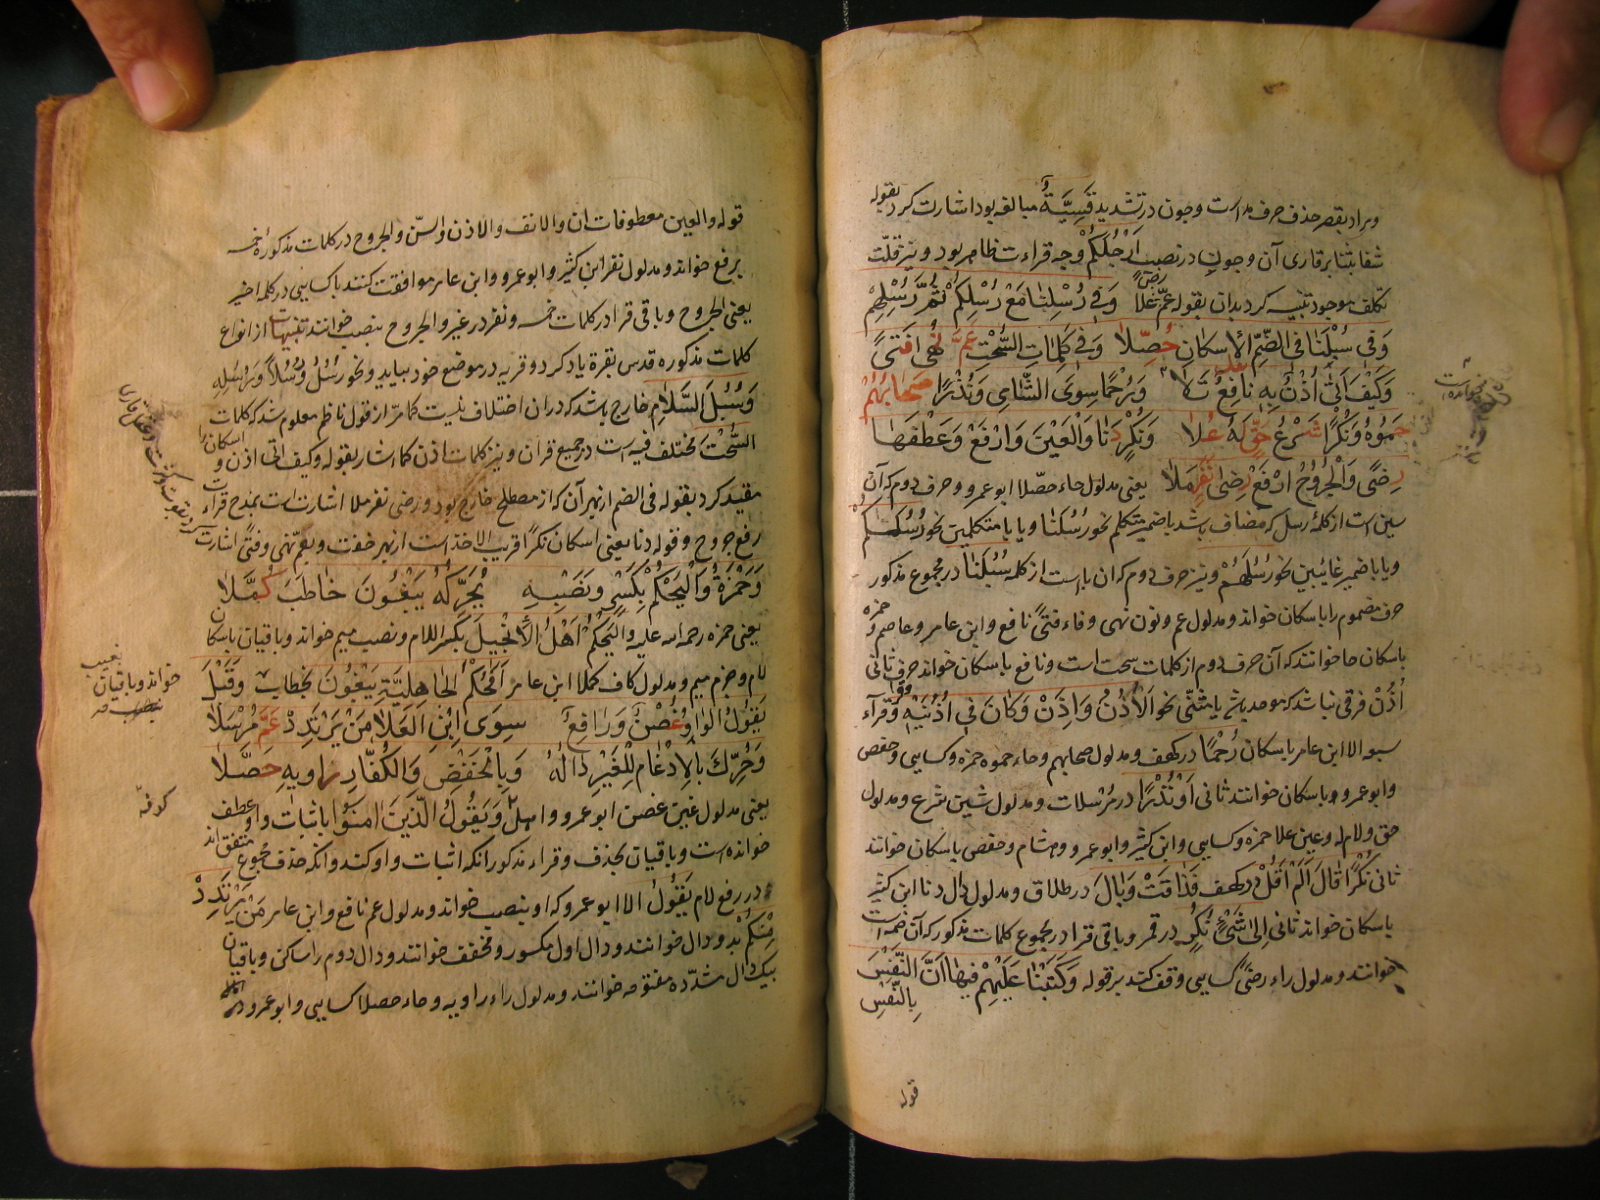 ومراد بقصر حذف حرف مد است وچون در تشدید قَسِیَّةً مبالغه بود اشارت کرد بقوله
شفا بثنا بر قاری آن وچون در نصب اَرْجُلَکُمْ وجه قراءت ظاهر بود
تکلف موجود تنبیه کرد بدان بقوله عَمَّ رِضًی عَلَا وَفِی رُسْلِنَا مَعْ رُسْلِکُمْ ثُمَّ رُسْلِهِمْ
وَفِی سُبْلَنَا فِی الضَّمِّ الْاِسْکَانُ حُصِّلَا وَفِی کَلِمَاتِ السُّحْتِ عَمَّ نُهًی فَتًی
وَکَیْفَ اَتٰی اُذْنٌ بِهِ نَافِعٌ تَلَا وَرُحْمًا سِوَی الشَّامِی وَنُذْرًا صِحَابُهُمْ
حَمَوْهُ وَنُکْرًا شَرْعُ حَقٍّ لَهُ عُلَا وَنُکْرٍ دَنَا وَالْعَیْنَ وَارْفَعْ وَعَطْفَهَا
رِضًی وَالْجُرُوحُ ارْفَعْ رِضٰی نَفَرٍ مَلَا یعنی مدلول حاء حصلا ابو عمرو وحرف دوم که آن
سین است از کلمهٔ رسل که مضاف باشد با ضمیر متکلم نحو رُسُلَنَا
ویا با ضمیر غایبین نحو رُسُلُهُمْ ونیز حرف دوم که ان باست از کلمه سُبُلَنَا در مجموع مذکور
حرف مضموم را باسکان خواند ومدلول عم ونون نهی وفاء فتًی نافع وابن عامر وعاصم وحمزه
باسکان حا خوانند که آن حرف دوم از کلمات سحت است ونافع باسکان خواند حرف ثانی
اُذُنْ فرقی نباشد که موحد باشد یا مثنی نحو اَلْاُذُنْ وَاِذَنْ وَکَانَ فِی اُذُنَیْهِ وَقْرًا وقراء
سبعه الا ابن عامر باسکان رُحْمًا در کهف ومدلول صحابهم وحاء حموه حمزه وکسایی وحفص
وابو عمرو وباسکان خوانند ثانی اَوْ نُذْرًا در مرسلات ومدلول شین شرع ومدلول
حق ولام له وعین علا حمزه وکسایی وابن کثیر وابو عمرو وهشام وحفص باسکان خوانند
ثانی نُکْرًا قَالَ اَلَمْ اَقُلْ در کهف فَذَاقَتْ وَبَالَ در طلاق ومدلول دال دنا ابن کثیر
باسکان خواند ثانی اِلٰی شَیْءٍ نُکُرٍ در قمر وباقی قرا در مجموع کلمات مذکور که آن ضمه است
خوانند ومدلول راء رضًی کسایی وقف کند بر قوله وَکَتَبْنَا عَلَیْهِمْ فِیهَا اَنَّ النَّفْسَ
بِالنَّفْسِ
قوله
قوله والعین معطوفات ان والانف والاذن والسن والجروح در کلمات مذکوره خمسه
برفع خواند ومدلول نفر ابن کثیر وابو عمرو وابن عامر موافقت کنند با کسایی در کلمه اخیر
یعنی الجروح وباقی قرا در کلمات خمسه ونفر در غیر والجروح بنصب خوانند تنبیهات از انواع
کلمات مذکوره قدس بقرة یاد کرد در موضع خود بیاید ونحو رُسُلٌ وُرُسُلًا وَرُسُلِهِ
وَسُبُلَ السَّلَامِ خارج باشد که دران اختلاف نیست کما مر از قول ناظم معلوم شد که کلمات
السُّحْتَ مختلف فیه است در جمیع قران ونیز کلمات اذن کما اشار بقوله وکیف اتی اذن واسکان را
مقید کرد بقوله فی الضم از بهر آن که از مصطلح خارج بود ورضی نفر ملا اشارت است بمدح قراءت
رفع جروح وقوله دنا یعنی اسکان نکرًا قریب الاخذ است از بهر خفت وبعم نهی وفتًی اشارت
وَحَمْزَةُ وَلْیَحْکُمْ بِکَسْرٍ وَنَصْبِهِ یُحَرِّکُهُ یَبْغُونَ خَاطَبَ کُمَّلَا
یعنی حمزه رحمه الله علیه وَلْیَحْکُمْ اَهْلُ الْاِنْجِیلِ بکسر اللام ونصب میم خواند وباقیان باسکان
لام وجزم میم ومدلول کاف کملا ابن عامر اَفَحُکْمَ الْجَاهِلِیَّةِ یَبْغُونَ بخطاب وَقَبْلَ
یَقُولُ الْوَاوُ غُصْنٌ وَرَافِعٌ سِوَی ابْنِ الْعَلَا مَنْ یَرْتَدِدْ عَمَّ مُرْسَلَا
وَحُرِّکَ بِالْاِدْغَامِ لِلْغَیْرِ دَالُهُ وَبِالْخَفْضِ وَالْکُفَّارِ رَاوِیهِ حَصَّلَا
یعنی مدلول غین غصن ابو عمرو واهل وَیَقُولُ الَّذِینَ اٰمَنُوْا باثبات واو عطف
خوانده است وباقیان بحذف وقراء مذکور انکه اثبات واو کند وانکه حذف مجموع متفق اند
در رفع لام یَقُولُ الا ابو عمرو که او بنصب خواند ومدلول عم نافع وابن عامر مَنْ یَرْتَدِدْ
مِنْکُمْ بدو دال خوانند ودال اول مکسور ومخفف خوانند ودال دوم را ساکن وباقیان
بیک دال مشدده مفتوحه خوانند ومدلول راء راویه وحاء حصلا کسایی وابو عمرو
بغیب
خواند وباقیان
کوفه